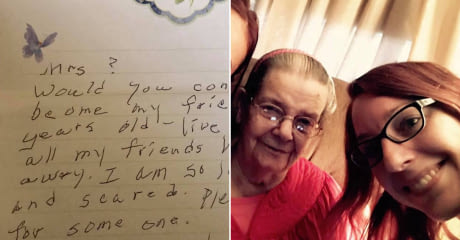 Mrs ?
Would you con
become my frie
years old - live
all my friends
away. I am so
and scared. Ple
for some one.